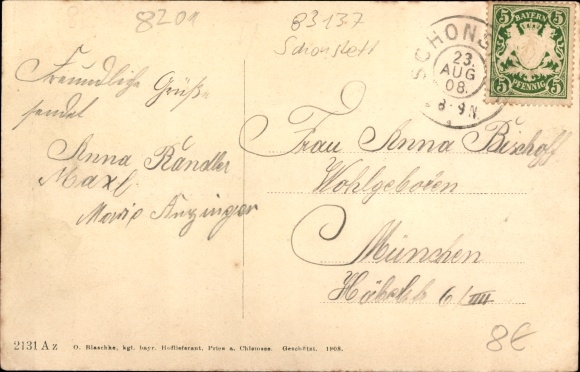 8201
83137
Schonstett
SCHONS
23.
AUG
08.
8-9 N.
5 BAYERN 5
5 PFENNIG 5
Freundliche Grüße
sendet
Anna Kandler
Maxl
Marie Anzinger
Frau Anna Bischoff
Wohlgeboren
München
6/III
8€
2131 Az O. Blaschke, kgl. bayr. Hoflieferant, Prien a. Chiemsee. Geschützt. 1908.